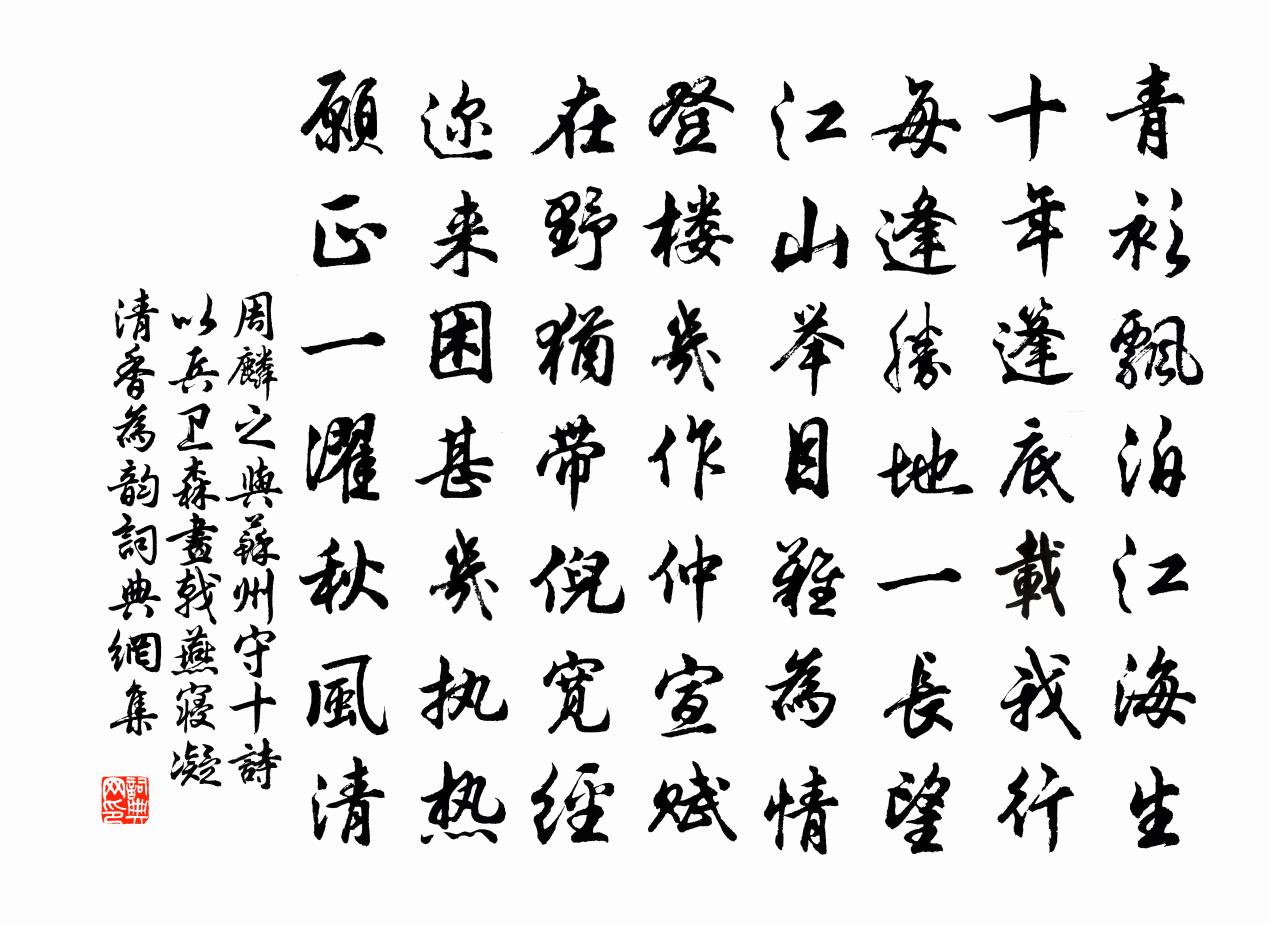 青衫飄泊江海生
十年篷底載我行
每逢勝地一長望
江山举目難為情
登楼幾作仲宣赋
在野猶带倪宽經
迩来困甚幾执热
願正一濯秋風清
周麟之與蘇州守十詩
以兵卫森畫戟燕寝凝
清香為韵詞典網集
詞典
网印